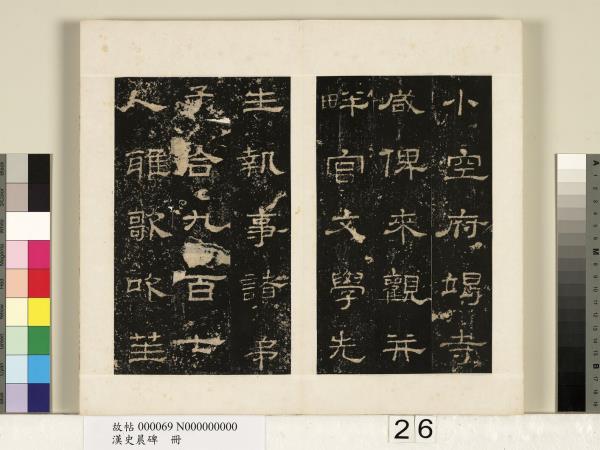 小空府竭寺
咸俾來觀并
畔官文學先
生執事諸弟
子合九百七
人雅歌吹笙
故帖 000069 N000000000
漢史晨碑 冊
26